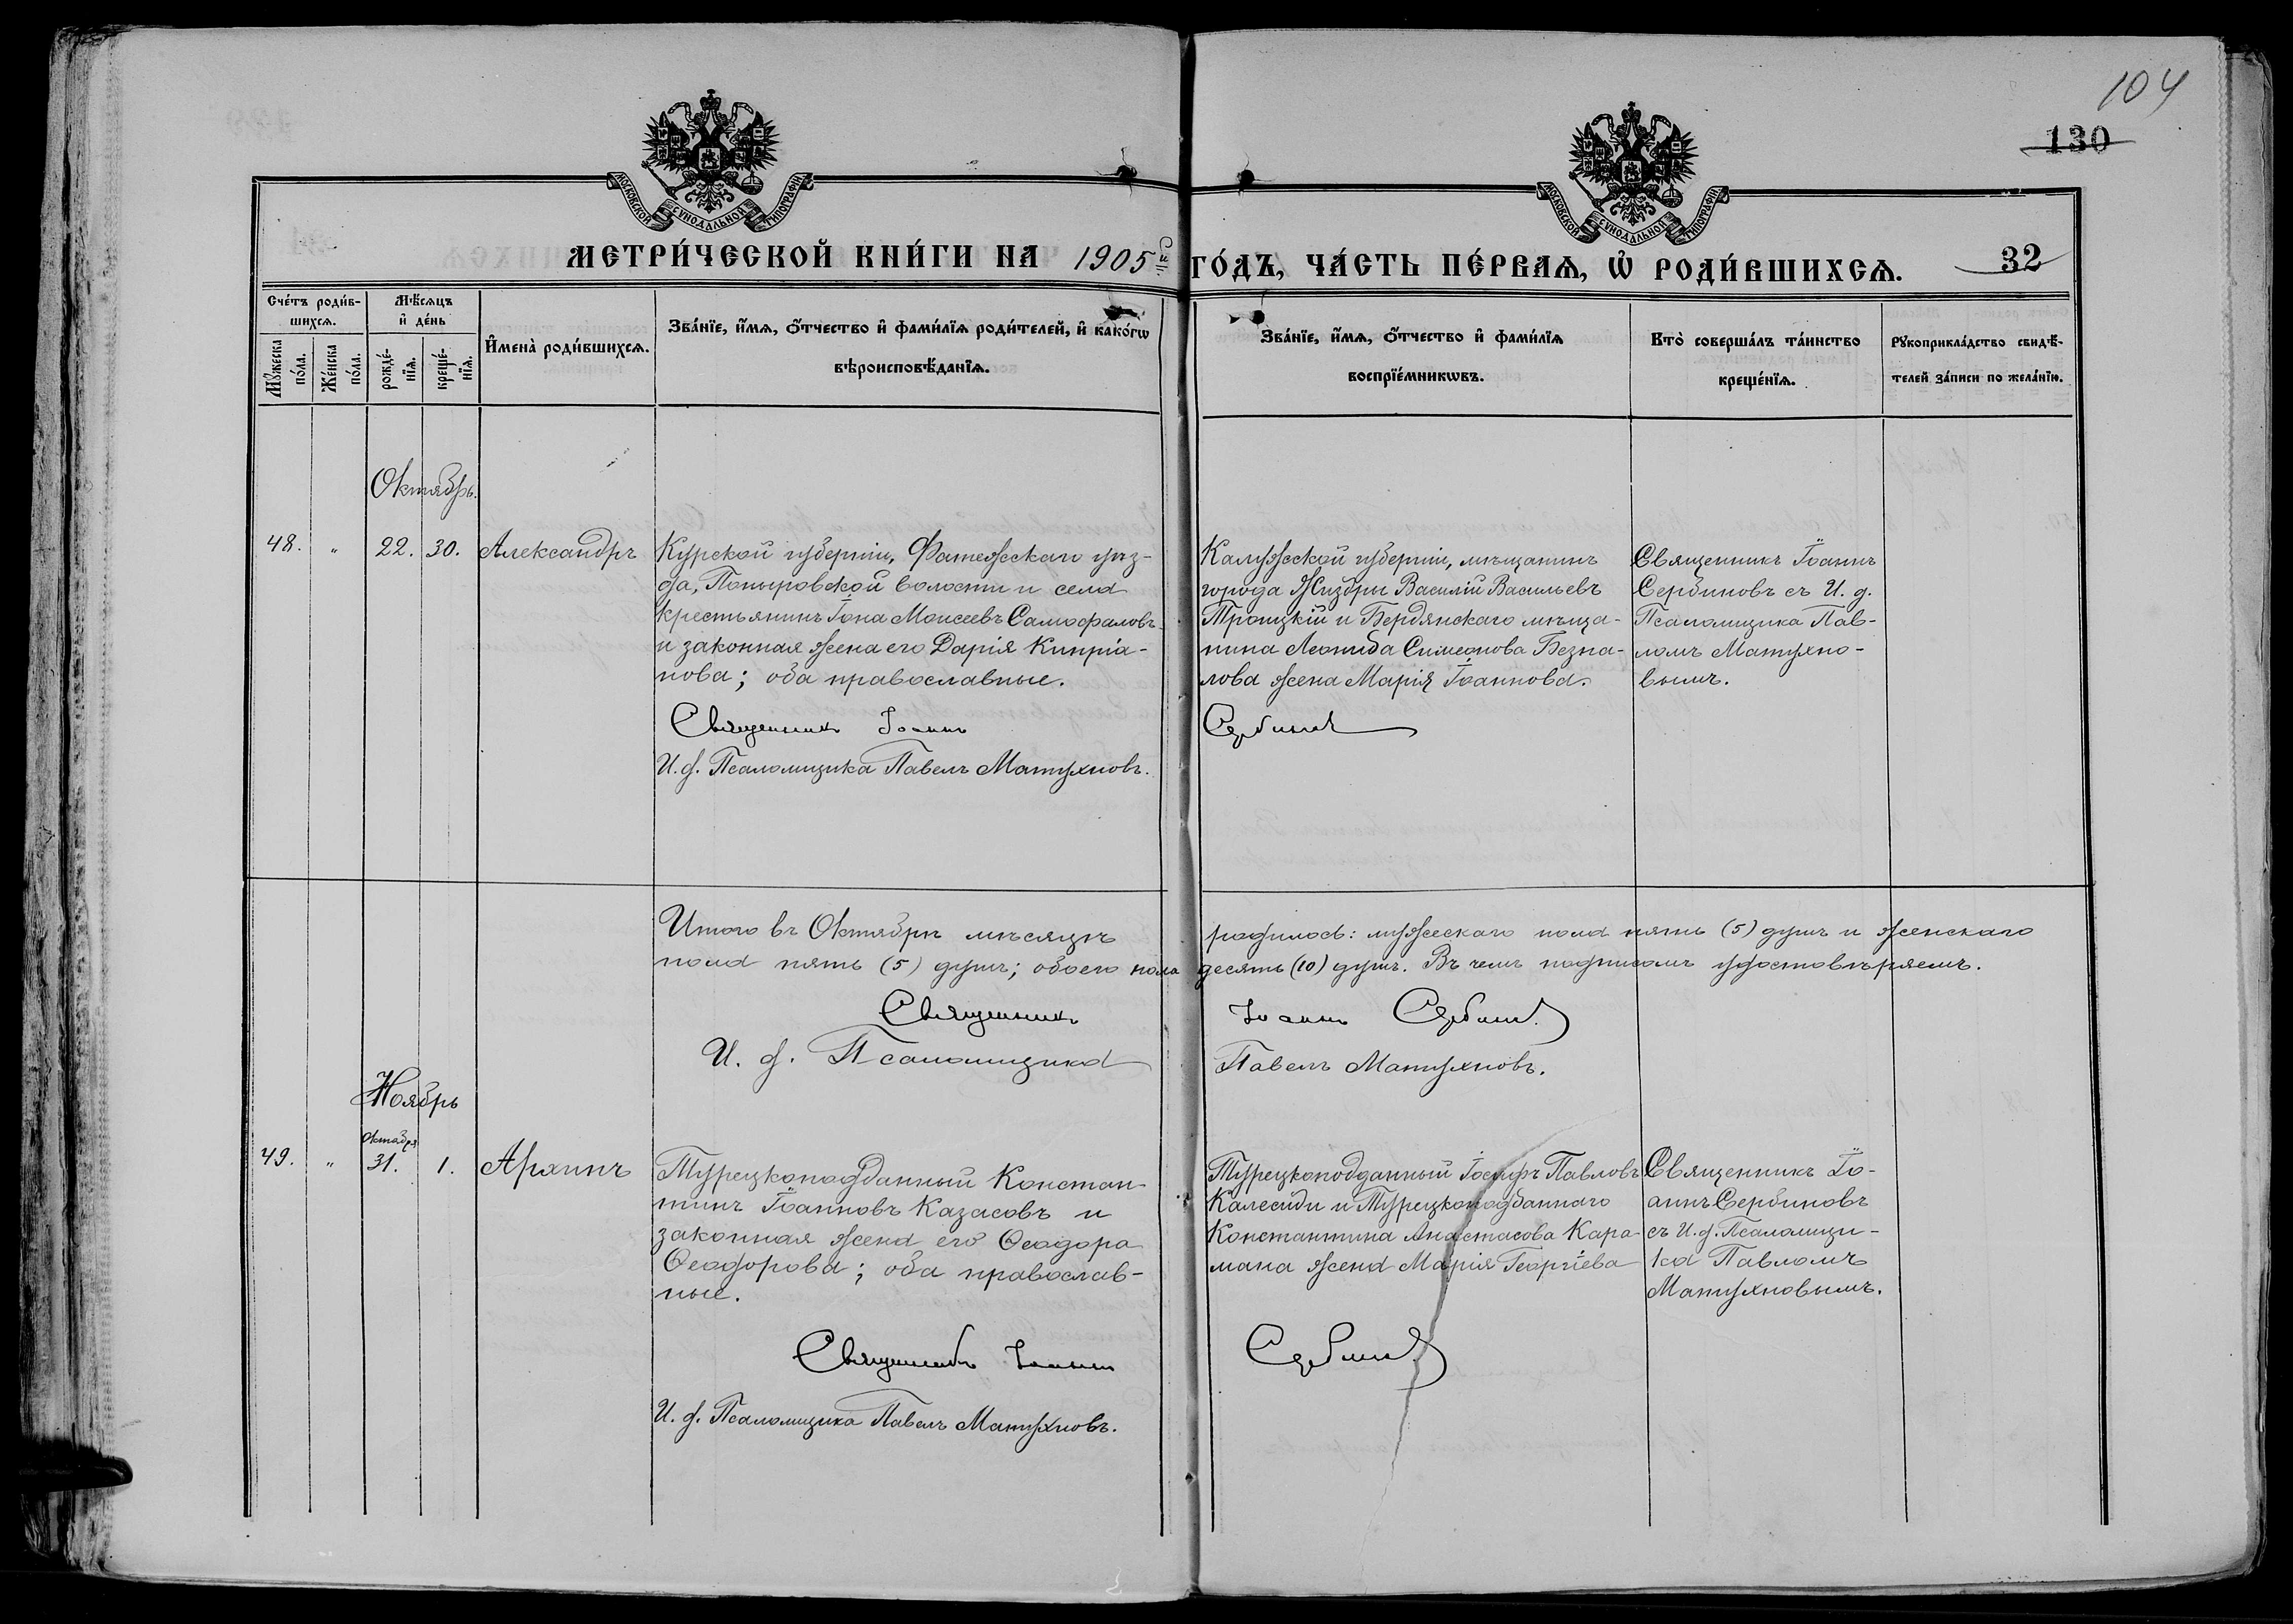 104
130
МОСКОВСКОЙ СѴНОДАЛЬНОЙ ТИПОГРАФІИ
МОСКОВСКОЙ СѴНОДАЛЬНОЙ ТИПОГРАФІИ
МЕТРИ́ЧЕСКОЙ КНИ́ГИ НА 1905й ГО́ДЪ, ЧА́СТЬ ПЕ́РВАѦ, Ѡ҆ РОДИ́ВШИХСѦ.
32
Сче́тъ роди́в-
шихсѧ.
Мꙋ́жеска
по́ла.
Же́нска
по́ла.
Мѣ́сѧцъ
и҆ де́нь
рожде́-
нїѧ.
креще́-
нїѧ.
И҆мена̀ роди́вшихсѧ.
Зва́нїе, и҆́мѧ, ѻ҆́тчество и҆ фами́лїѧ роди́телей, и҆ како́гѡ
вѣроисповѣ́данїѧ.
Зва́нїе, и҆́мѧ, ѻ҆́тчество и҆ фами́лїѧ
воспрїе́мникѡвъ.
Кто̀ соверша́лъ та́инство
креще́нїѧ.
Рꙋкоприкла́дство свидѣ́-
телей за́писи по жела́нїю.
Октябрь.
48. " 22. 30. Александръ
Курской губерніи, Фатежскаго уѣз-
да, Поныровской волости и села
крестьянинъ Іона Моисеевъ Самофаловъ
и законная жена его Дарія Кипріа-
нова; оба православные.
Священникъ Іоаннъ
И. д. Псаломщика Павелъ Матухновъ.
Калужской губерніи, мѣщанинъ
города Жиздры Василій Васильевъ
Троицкій и Бердянскаго мѣща-
нина Леонида Симеонова Безпа-
лова жена Марія Іоаннова.
Сербиновъ
Священникъ Іоаннъ
Сербиновъ съ И. д.
Псаломщика Пав-
ломъ Матухно-
вымъ.
Итого въ Октябрѣ мѣсяцѣ родилось: мужескаго пола пять (5) душъ и женскаго
пола пять (5) душъ; обоего пола десять (10) душъ. Въ чемъ подписомъ удостовѣряемъ.
Священникъ Іоаннъ Сербиновъ.
И. д. Псаломщика Павелъ Матухновъ.
Ноябрь
Октября
49. " 31. 1. Архипъ
Турецкоподданный Констан-
тинъ Іоанновъ Казасовъ и
законная жена его Ѳеодора
Ѳеодорова; оба православ-
ные.
Священникъ Іоаннъ
И. д. Псаломщика Павелъ Матухновъ.
Турецкоподданный Іосифъ Павловъ
Калесиди и Турецкоподданнаго
Константина Анастасова Кара-
мана жена Марія Георгіева
Сербиновъ
Священникъ Іо-
аннъ Сербиновъ
съ И. д. Псаломщи-
ка Павломъ
Матухновымъ.